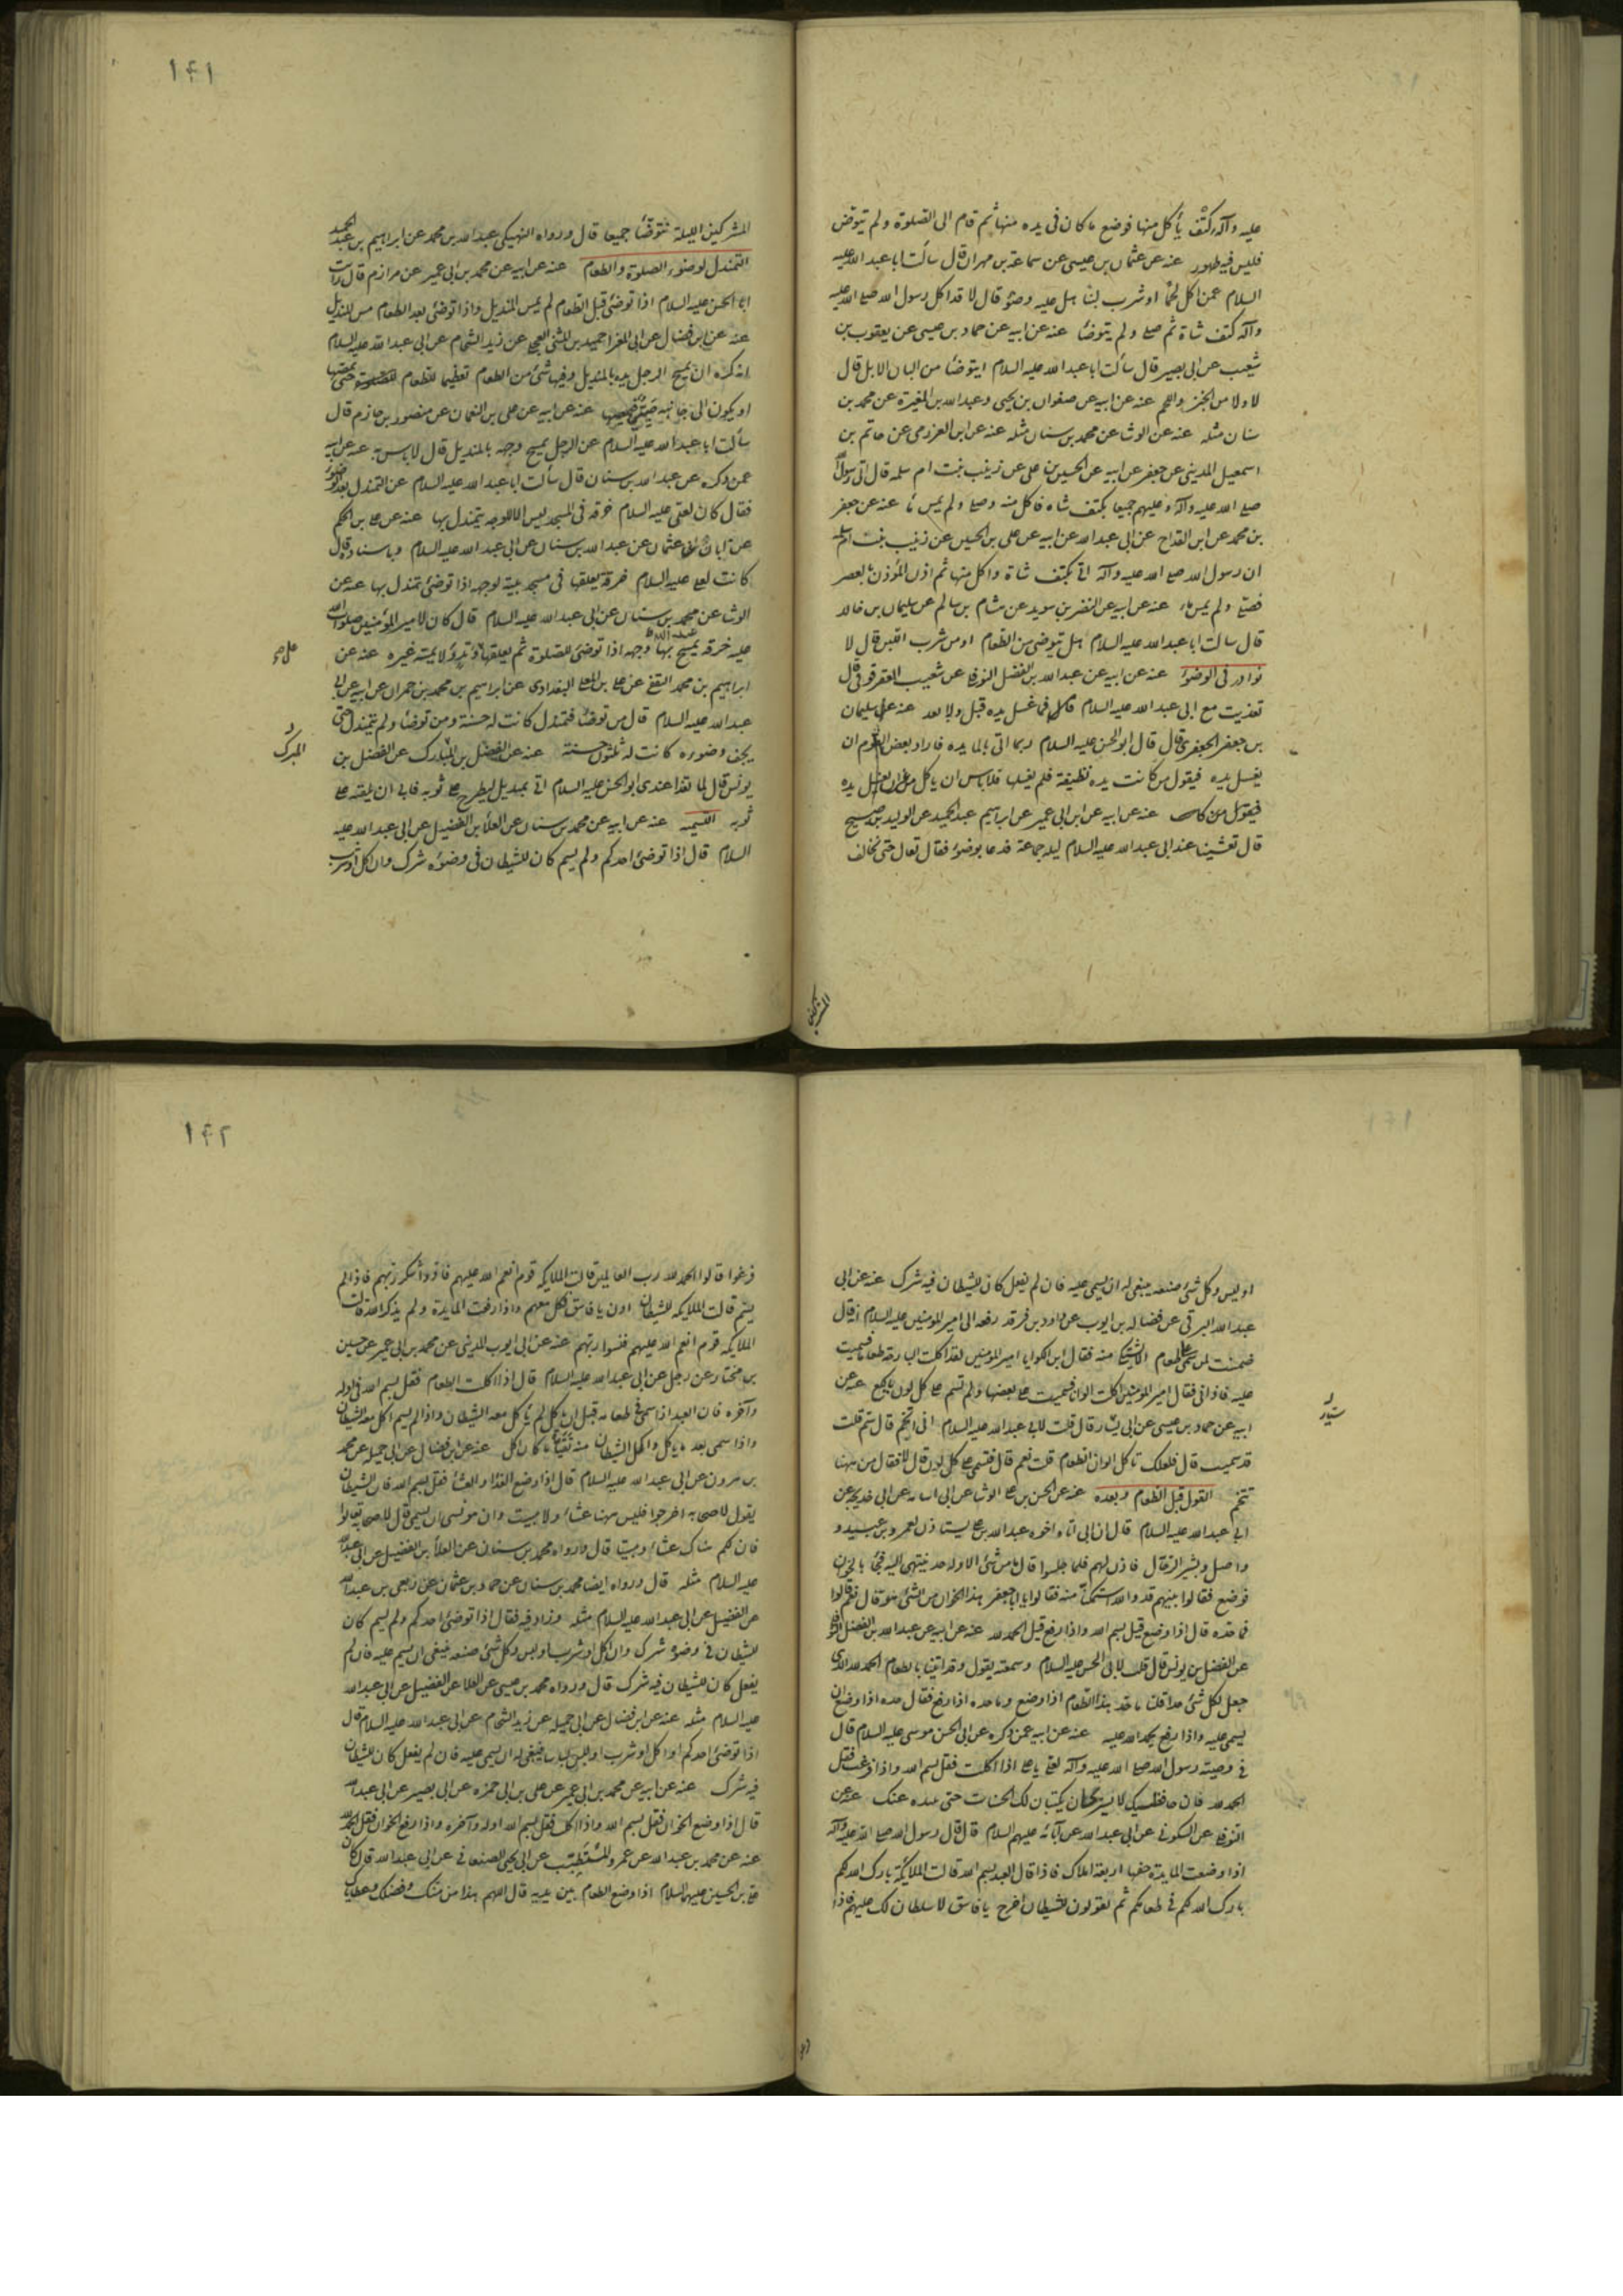 عليه وآله كتف يأكل منها فوضع ما كان فى يده منها ثم قام الى الصلوة ولم يتوض
فليس فيه طهور عنه عن عثمان بن عيسى عن سماعة بن مهران قال سألت ابا عبد الله عليه
السلام عمن اكل لحما او شرب لبنا هل عليه وضوء قال لا قد اكل رسول الله صلى الله عليه
وآله كتف شاة ثم صلى ولم يتوضأ عنه عن ابيه عن حماد بن عيسى عن يعقوب بن
شعيب عن ابى بصير قال سألت ابا عبد الله عليه السلام ايتوضأ من البان الابل قال
لا ولا من الخبز واللحم عنه عن ابيه عن صفوان بن يحيى وعبد الله بن المغيرة عن محمد بن
سنان مثله عنه عن الوشا عن محمد بن سنان مثله عنه عن ابن العزرمى عن حاتم بن
اسمعيل المدينى عن جعفر عن ابيه عن الحسين بن على عن زينب بنت ام سلمه قال اتى رسول الله
صلى الله عليه وآله وعليهم جميعا بكتف شاه فاكل منه وصلى ولم يمس ماء عنه عن جعفر
بن محمد عن ابن القداح عن ابى عبد الله عن ابيه عن على بن الحسين عن زينب بنت ام سلمه
ان رسول الله صلى الله عليه وآله اتى بكتف شاة واكل منها ثم اذن المؤذن بالعصر
فصلى ولم يمس ماء عنه عن ابيه عن النضر بن سويد عن هشام بن سالم عن سليمان بن خالد
قال سالت ابا عبد الله عليه السلام هل يتوضى من الطعام او من شرب اللبن قال لا
نوادر فى الوضوء عنه عن ابيه عن عبد الله بن الفضل النوفلى عن شعيب العقرقوفى قال
تغذيت مع ابى عبد الله عليه السلام فما غسل يده قبل ولا بعد عنه عن سليمان
بن جعفر الجعفرى قال قال ابو الحسن عليه السلام ربما اتى بالمايده فاراد بعض القوم ان
يغسل يده فيقول من كانت يده نظيفة فلم يغسلها فلا باس ان ياكل من غير ان يغسل يده
عنه عن ابيه عن ابن ابى عمير عن ابراهيم عبد الحميد عن الوليد بن صبيح
قال تعشينا عند ابى عبد الله عليه السلام ليلة جماعة فدعا بوضوء فقال تعال حتى نخالف
المشركين
١٤١
المشركين الليلة نتوضأ جميعا قال ورواه النهيكى عبد الله بن محمد عن ابراهيم بن عبد الحميد
التمندل لوضوء الصلوة والطعام عنه عن ابيه عن محمد بن ابى عمير عن مرازم قال رأيت
ابا الحسن عليه السلام اذا توضئ قبل الطعام لم يمس المنديل واذا توضئ بعد الطعام مس المنديل
عنه عن ابن فضال عن ابى المغرا حميد بن المثنى العجلى عن زيد الشحام عن ابى عبد الله عليه السلام
انه كره ان يمسح الرجل يده بالمنديل وفيها شئ من الطعام تعظيما للطعام حتى يمصها
او يكون الى جانبه صبى يمصها عنه عن ابيه عن على بن النعمان عن منصور بن حازم قال
سألت ابا عبد الله عليه السلام عن الرجل يمسح وجهه بالمنديل قال لا باس به عنه عن ابيه
عمن ذكره عن عبد الله بن سنان قال سألت ابا عبد الله عليه السلام عن التمندل بعد الوضوء
فقال كان لعلى عليه السلام خرقه فى المسجد ليس الا للوجه يتمندل بها عنه عن على بن الحكم
عن ابان بن عثمان عن عبد الله بن سنان عن ابى عبد الله عليه السلام وباسناده قال
كانت لعلى عليه السلام خرقة يعلقها فى مسجد بيته لوجهه اذا توضئ تمندل بها عنه عن
الوشا عن محمد بن سنان عن ابى عبد الله عليه السلام قال كان لامير المؤمنين صلوات الله
عليه خرقه يمسح بها وجهه اذا توضئ للصلوة ثم يعلقها على وتد ولا يمسه غيره عنه عن
ابراهيم بن محمد الثقفى عن على بن المعلى البغدادى عن ابراهيم بن محمد بن حمران عن ابيه عن ابى
عبد الله عليه السلام قال من توضئ فتمندل كانت له حسنة ومن توضأ ولم يتمندل حتى
يجف وضوءه كانت له ثلثون حسنة عنه عن الفضل بن المبارك عن الفضل بن
يونس قال لما تغذا عندى ابو الحسن عليه السلام اتى بمنديل ليطرح على ثوبه فابى ان يلقيه على
ثوبه التسمية عنه عن ابيه عن محمد بن سنان عن العلاء بن الفضيل عن ابى عبد الله عليه
السلام قال اذا توضئ احدكم ولم يسم كان للشيطان فى وضوءه شرك وان اكل او شرب
المبرك
او لبس وكل شئ صنعه ينبغى له ان يسمى عليه فان لم يفعل كان للشيطان فيه شرك عنه عن ابى
عبد الله البرقى عن فضاله بن ايوب عن داود بن فرقد رفعه الى امير المومنين عليه السلام انه قال
ضمنت لمن سمى على طعام الا يشتكى منه فقال ابن الكوا يا امير المومنين لقد اكلت البارحة طعاما فسميت
عليه فاذانى فقال امير المومنين اكلت الوانا فسميت على بعضها ولم تسم على كل لون يا لكع عنه عن
ابيه عن حماد بن عيسى عن ابى يسار قال قلت لابى عبد الله عليه السلام انى اتخم قال سم قلت
قد سميت قال فلعلك تاكل الوان الطعام قلت نعم قال فتسمى على كل لون قال لا فقال من ههنا
تتخم القول قبل الطعام وبعده عنه عن الحسن بن على الوشا عن ابى اسامه عن ابى خديجه عن
ابى عبد الله عليه السلام قال ان ابى اتاه اخوه عبد الله بن على يستاذن لعمرو بن عبيد و
واصل وبشير الرحال فاذن لهم فلما جلسوا قال ما من شئ الا وله حد ينتهى اليه فجئ بالخوان
فوضع فقالوا بينهم قد والله استمكنا منه فقالوا يا ابا جعفر هذا الخوان من الشئ هو قال نعم قالوا
فما حده قال اذا وضع قيل بسم الله واذا رفع قيل الحمد لله عنه عن ابيه عن عبد الله بن الفضل النوفلى
عن الفضل بن يونس قال قلت لابى الحسن عليه السلام وسمعته يقول وقد اتينا بالطعام الحمد لله الذى
جعل لكل شئ حدا قلنا ما حد هذا الطعام اذا وضع وما حده اذا رفع فقال حده اذا وضع ان
يسمى عليه واذا رفع يحمد الله عليه عنه عن ابيه عمن ذكره عن ابى الحسن موسى عليه السلام قال
فى وصية رسول الله صلى الله عليه وآله لعلى يا على اذا اكلت فقل بسم الله واذا فرغت فقل
الحمد لله فان حافظيك لا يبرحان يكتبان لك الحسنات حتى تبعده عنك عنه عن
النوفلى عن السكونى عن ابى عبد الله عن آبائه عليهم السلام قال قال رسول الله صلى الله عليه وآله
اذا وضعت المايدة حفها اربعة املاك فاذا قال العبد بسم الله قالت الملائكة بارك الله لكم
بارك الله لكم فى طعامكم ثم يقولون للشيطان اخرج يا فاسق لا سلطان لك عليهم فاذا
١٤٢
فرغوا قالوا الحمد لله رب العالمين قالت الملايكه قوم انعم الله عليهم فادوا شكر ربهم فاذا لم
يسم قالت الملايكه للشيطان ادن يا فاسق فكل معهم واذا رفعت المايدة ولم يذكر الله قالت
الملايكه قوم انعم الله عليهم فنسوا ربهم عنه عن ابى ايوب المدينى عن محمد بن ابى عمير عن حسين
بن مختار عن رجل عن ابى عبد الله عليه السلام قال اذا اكلت الطعام فقل بسم الله فى اوله
وآخره فان العبد اذا سمى فى طعامه قبل ان ياكل لم ياكل معه الشيطان واذا لم يسم اكل معه الشيطان
واذا سمى بعد ما ياكل واكل الشيطان منه تقيأ ما كان اكل عنه عن ابن فضال عن ابى جميله عن محمد
بن مرون عن ابى عبد الله عليه السلام قال اذا وضع الغذا والعشا فقل بسم الله فان الشيطان
يقول لاصحابه اخرجوا فليس ههنا عشاء ولا مبيت وان هو نسى ان يسمى قال لاصحابه تعالوا
فان لكم هناك عشاء ومبيتا قال ورواه محمد بن سنان عن العلا بن الفضيل عن ابى عبد الله
عليه السلام مثله قال ورواه ايضا محمد بن سنان عن حماد بن عثمان عن ربعى بن عبد الله
عن الفضيل عن ابى عبد الله عليه السلام مثله وزاد فيه فقال اذا توضئ احدكم ولم يسم كان
للشيطان فى وضوءه شرك وان اكل او شرب او لبس وكل شئ صنعه ينبغى ان يسم عليه فان لم
يفعل كان للشيطان فيه شرك قال ورواه محمد بن عيسى عن العلا عن الفضيل عن ابى عبد الله
عليه السلام مثله عنه عن ابن فضال عن ابى جميله عن زيد الشحام عن ابى عبد الله عليه السلام قال
اذا توضئ احدكم او اكل او شرب او لبس لباسا ينبغى له ان يسمى عليه فان لم يفعل كان للشيطان
فيه شرك عنه عن ابيه عن محمد بن ابى عمير عن على بن ابى حمزه عن ابى بصير عن ابى عبد الله
قال اذا وضع الخوان فقل بسم الله واذا اكلت فقل بسم الله اوله وآخره واذا رفع الخوان فقل الحمد لله
عنه عن محمد بن عبد الله عن عمرو المتطبب عن ابى يحيى الصنعانى عن ابى عبد الله قال كان
على بن الحسين عليهما السلام اذا وضع الطعام بين يديه قال اللهم هذا من منك وفضلك وعطاياك